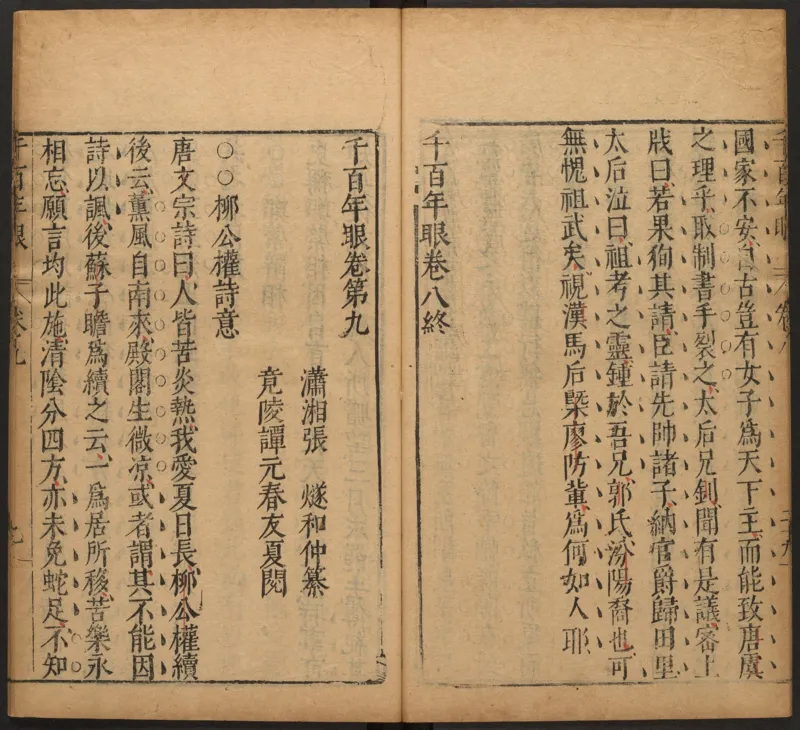 國家不安自古豈有女子爲天下主而能致唐虞
之理乎取制書手裂之太后兄釗聞有是議密上
牋曰若果狥其請臣請先帥諸子納官爵歸田里
太后泣曰祖考之靈鍾於吾兄郭氏汾陽裔也可
無愧祖武矣視漢馬后槩廖防軰爲何如人耶
千百年眼卷八終
千百年眼卷第九
瀟湘張 燧和仲纂
竟陵譚元春友夏閱
○○柳公權詩意
唐文宗詩曰人皆苦炎熱我愛夏日長柳公權續
後云薰風自南來殿閣生微凉或者謂其不能因
詩以諷後蘇子瞻爲續之云一爲居所移苦樂永
相忘願言均此施清陰分四方亦未免蛇足不知
千百年眼 卷九 九